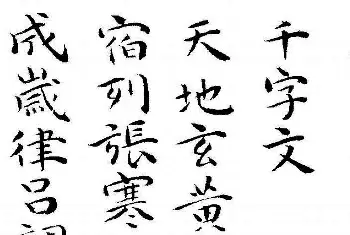 千字文
天地玄黄
宿列張寒
成歲律吕